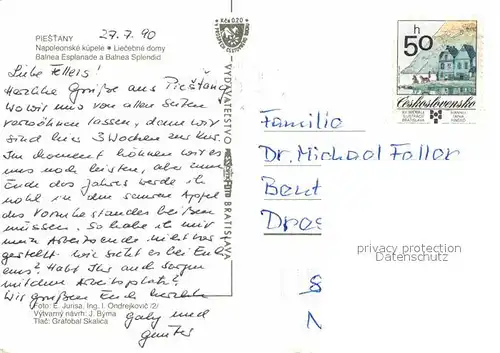 PIEŠŤANY
27.7.90
Napoleonské kúpele • Liečebné domy
Balnea Esplanade a Balnea Splendid
Liebe Fellers!
Herzliche Grüße aus Piešťany
wo wir uns von allen Seiten
verwöhnen lassen, denn wir
sind hier 3 Wochen zur Kur.
Im Moment können wir es
uns noch leisten, aber zum
Ende des Jahres werde ich
wohl in den sauren Apfel
des Vorruhestandes beißen
müssen. So habe ich mir
mein Arbeitsende nicht vor-
gestellt. Wie sieht es bei Euch
aus? Habt Ihr auch Sorgen
mit dem Arbeitsplatz?
Wir grüßen Euch herzlichst
Gaby und
Günter
Foto: E. Jurisa, Ing. I. Ondrejkovič /2/
Výtvarný návrh: J. Býma
Tlač: Grafobal Skalica
VYDAVATEĽSTVO
BRATISLAVA
50 h
Československo
Familie
Dr. Michael Faller
Bent
Dres
privacy protection
Datenschutz
8
N